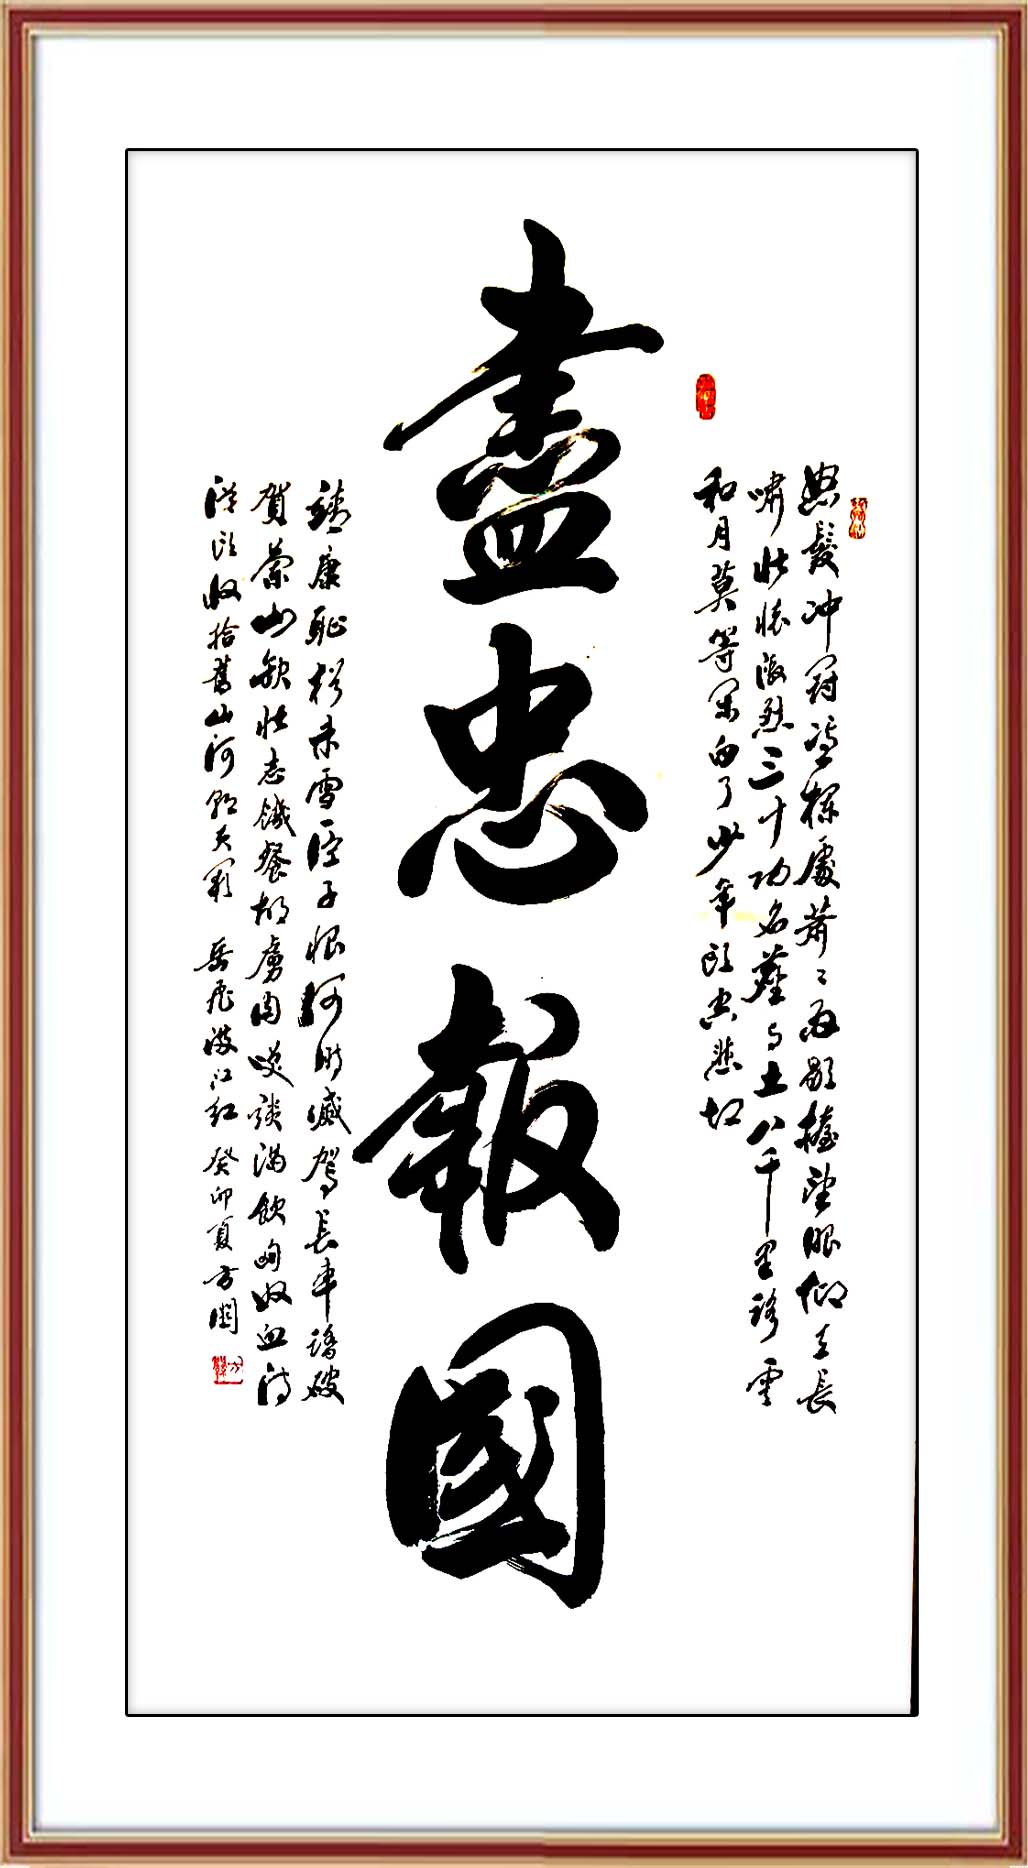 怒髮冲冠憑欄處蕭〻雨歇擡望眼仰天長
嘯壯懷激烈三十功名塵与土八千里路雲
和月莫等閑白了少年頭空悲切
盡忠報國
靖康恥猶未雪臣子恨何時滅駕長車踏破
賀蘭山缺壯志饑餐胡虜肉笑談渴飲匈奴血待
從頭收拾舊山河朝天闕 岳飛滿江紅 癸卯夏方